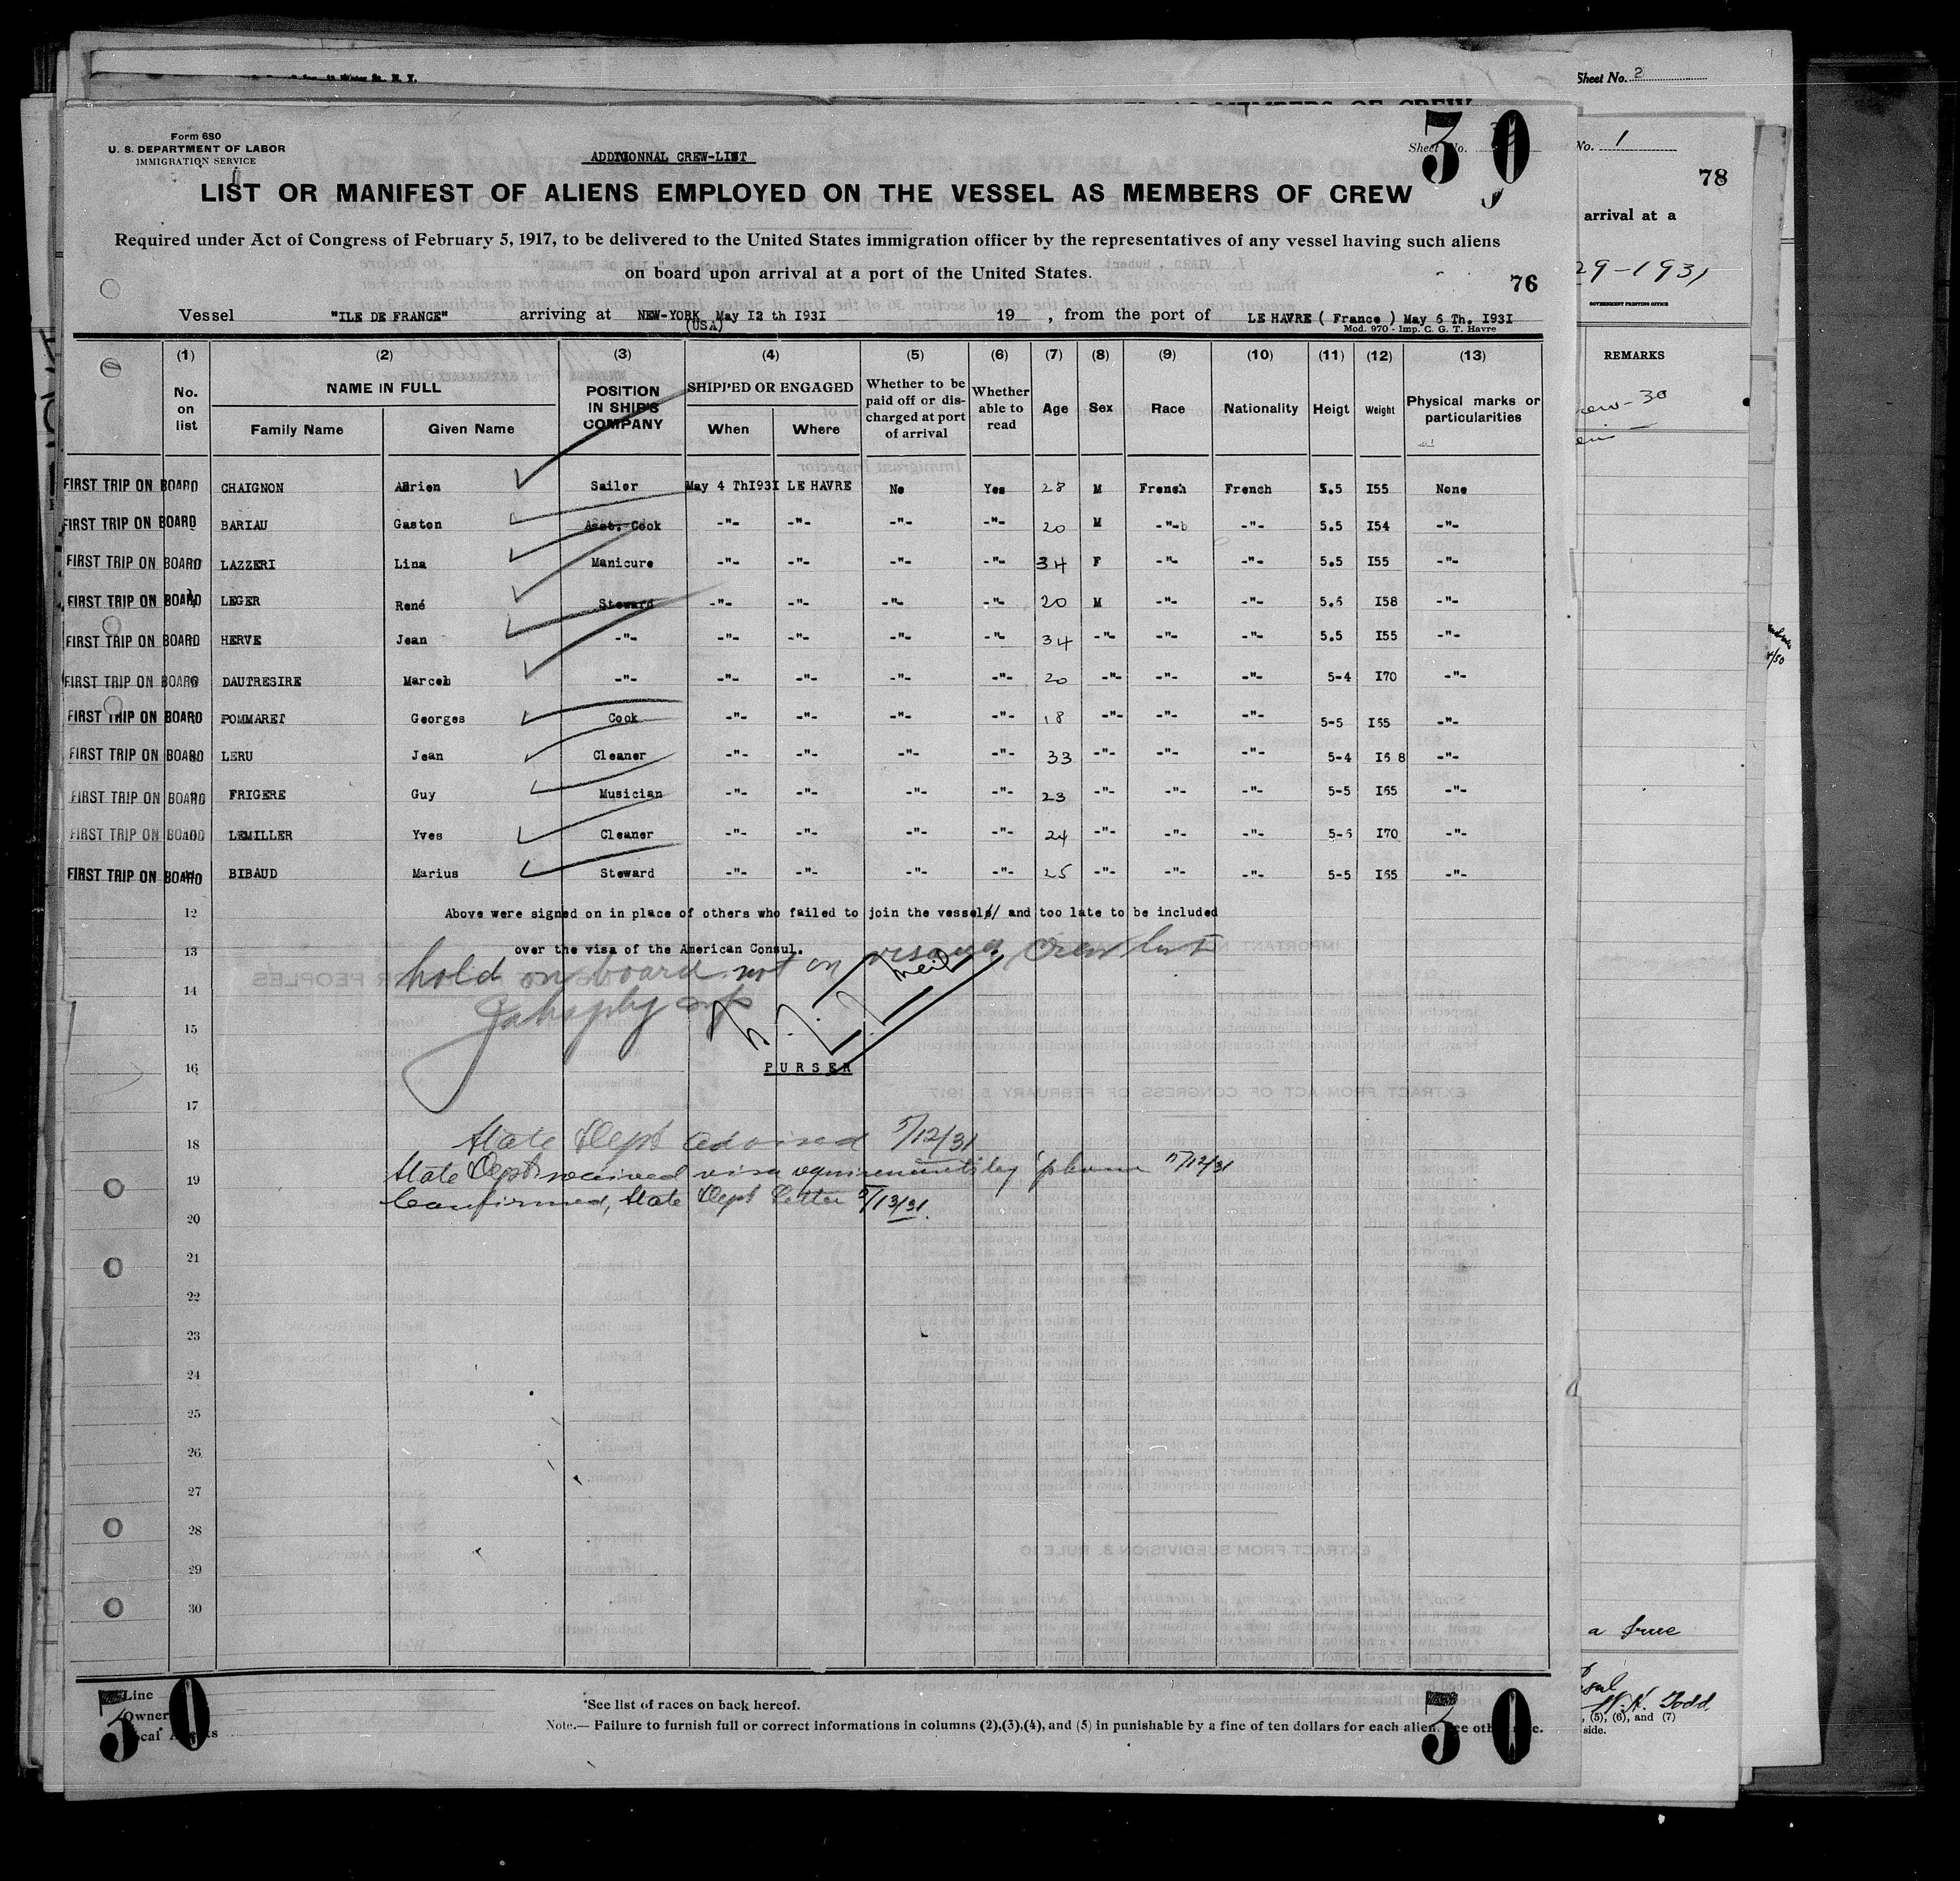 Sheet No. 2
Form 680
U. S. DEPARTMENT OF LABOR
IMMIGRATION SERVICE
ADDITIONNAL CREW-LIST
Sheet No.
30
No. 1
78
LIST OR MANIFEST OF ALIENS EMPLOYED ON THE VESSEL AS MEMBERS OF CREW
arrival at a
Required under Act of Congress of February 5, 1917, to be delivered to the United States immigration officer by the representatives of any vessel having such aliens
on board upon arrival at a port of the United States.
29-1931
76
GOVERNMENT PRINTING OFFICE
Vessel "ILE DE FRANCE" arriving at NEW-YORK May I2 th I93I 19 , from the port of LE HAVRE ( France ) May 6 Th. I93I
(USA)
Mod. 970 - Imp. C. G. T. Havre
(1) (2) (3) (4) (5) (6) (7) (8) (9) (10) (11) (12) (13)
REMARKS
No. on list NAME IN FULL Family Name Given Name POSITION IN SHIP'S COMPANY SHIPPED OR ENGAGED When Where Whether to be paid off or discharged at port of arrival Whether able to read Age Sex Race Nationality Heigt Weight Physical marks or particularities
FIRST TRIP ON BOARD CHAIGNON Adrien Sailor May 4 ThI93I LE HAVRE No Yes 28 M French French 5.5 I55 None
FIRST TRIP ON BOARD BARIAU Gaston Asst. Cook -"- -"- -"- -"- 20 M -"- -"- 5.5 I54 -"-
FIRST TRIP ON BOARD LAZZERI Lina Manicure -"- -"- -"- -"- 34 F -"- -"- 5.5 I55 -"-
FIRST TRIP ON BOARD LEGER René Steward -"- -"- -"- -"- 20 M -"- -"- 5.6 I58 -"-
FIRST TRIP ON BOARD HERVE Jean -"- -"- -"- -"- -"- 34 -"- -"- -"- 5.5 I55 -"-
FIRST TRIP ON BOARD DAUTRESIRE Marcel -"- -"- -"- -"- -"- 20 -"- -"- -"- 5-4 I70 -"-
FIRST TRIP ON BOARD POMMARET Georges Cook -"- -"- -"- -"- 18 -"- -"- -"- 5-5 I65 -"-
FIRST TRIP ON BOARD LERU Jean Cleaner -"- -"- -"- -"- 33 -"- -"- -"- 5-4 I6 8 -"-
FIRST TRIP ON BOARD FRIGERE Guy Musician -"- -"- -"- -"- 23 -"- -"- -"- 5-5 I65 -"-
FIRST TRIP ON BOARD LEMILLER Yves Cleaner -"- -"- -"- -"- 24 -"- -"- -"- 5-6 I70 -"-
FIRST TRIP ON BOARD BIBAUD Marius Steward -"- -"- -"- -"- 25 -"- -"- -"- 5-5 I65 -"-
12 Above were signed on in place of others who failed to join the vessel and too late to be included
13 over the visa of the American Consul.
hold on board not on visaed crew list
14
15
16 PURSER
17
18 State Dept advised 5/12/31
19 State Dept received visa requirements by 'phone 5/12/31
Confirmed, State Dept Letter 5/13/31.
20
21
22
23
24
25
26
27
28
29
30
a true
Line
Owner
Local Agents
30
*See list of races on back hereof.
Note.— Failure to furnish full or correct informations in columns (2),(3),(4), and (5) in punishable by a fine of ten dollars for each alien. See other side.
30
W. H. Todd
, (5), (6), and (7)
side.